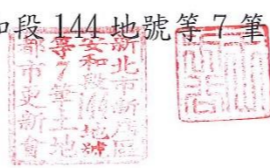 和段 144 地號等 7 筆
新北市新店區
安和段144地號
等7筆土地
都市更新會